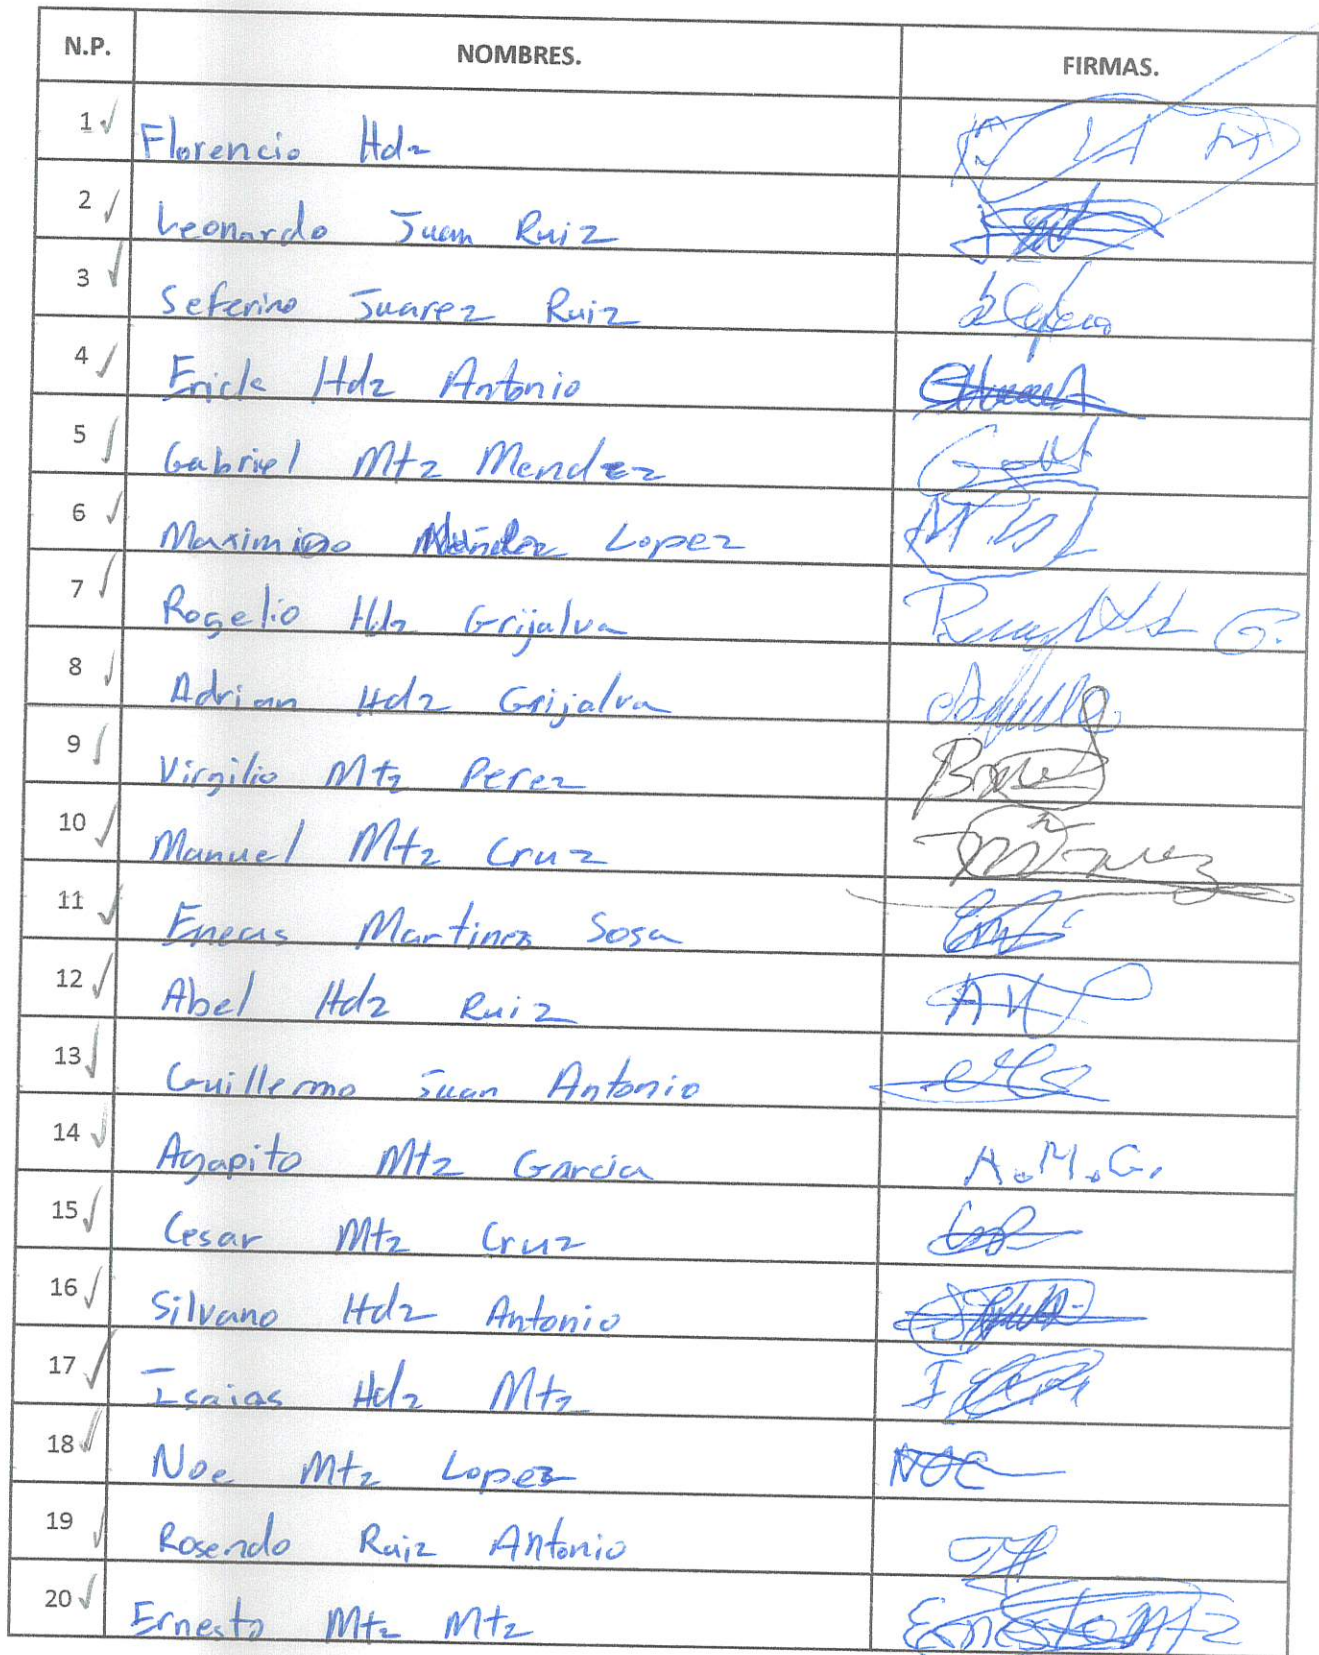 N.P. NOMBRES. FIRMAS.
1 Florencio Hdz
2 Leonardo Juan Ruiz
3 Seferino Juarez Ruiz
4 Erick Hdz Antonio
5 Gabriel Mtz Mendez
6 Maximino Méndez Lopez
7 Rogelio Hdz Grijalva
8 Adrian Hdz Grijalva
9 Virgilio Mtz Perez
10 Manuel Mtz Cruz
11 Eneas Martinez Sosa
12 Abel Hdz Ruiz
13 Guillermo Juan Antonio
14 Agapito Mtz Garcia A.M.G.
15 Cesar Mtz Cruz
16 Silvano Hdz Antonio
17 Isaias Hdz Mtz
18 Noe Mtz Lopez NOE
19 Rosendo Ruiz Antonio
20 Ernesto Mtz Mtz Ernesto Mtz